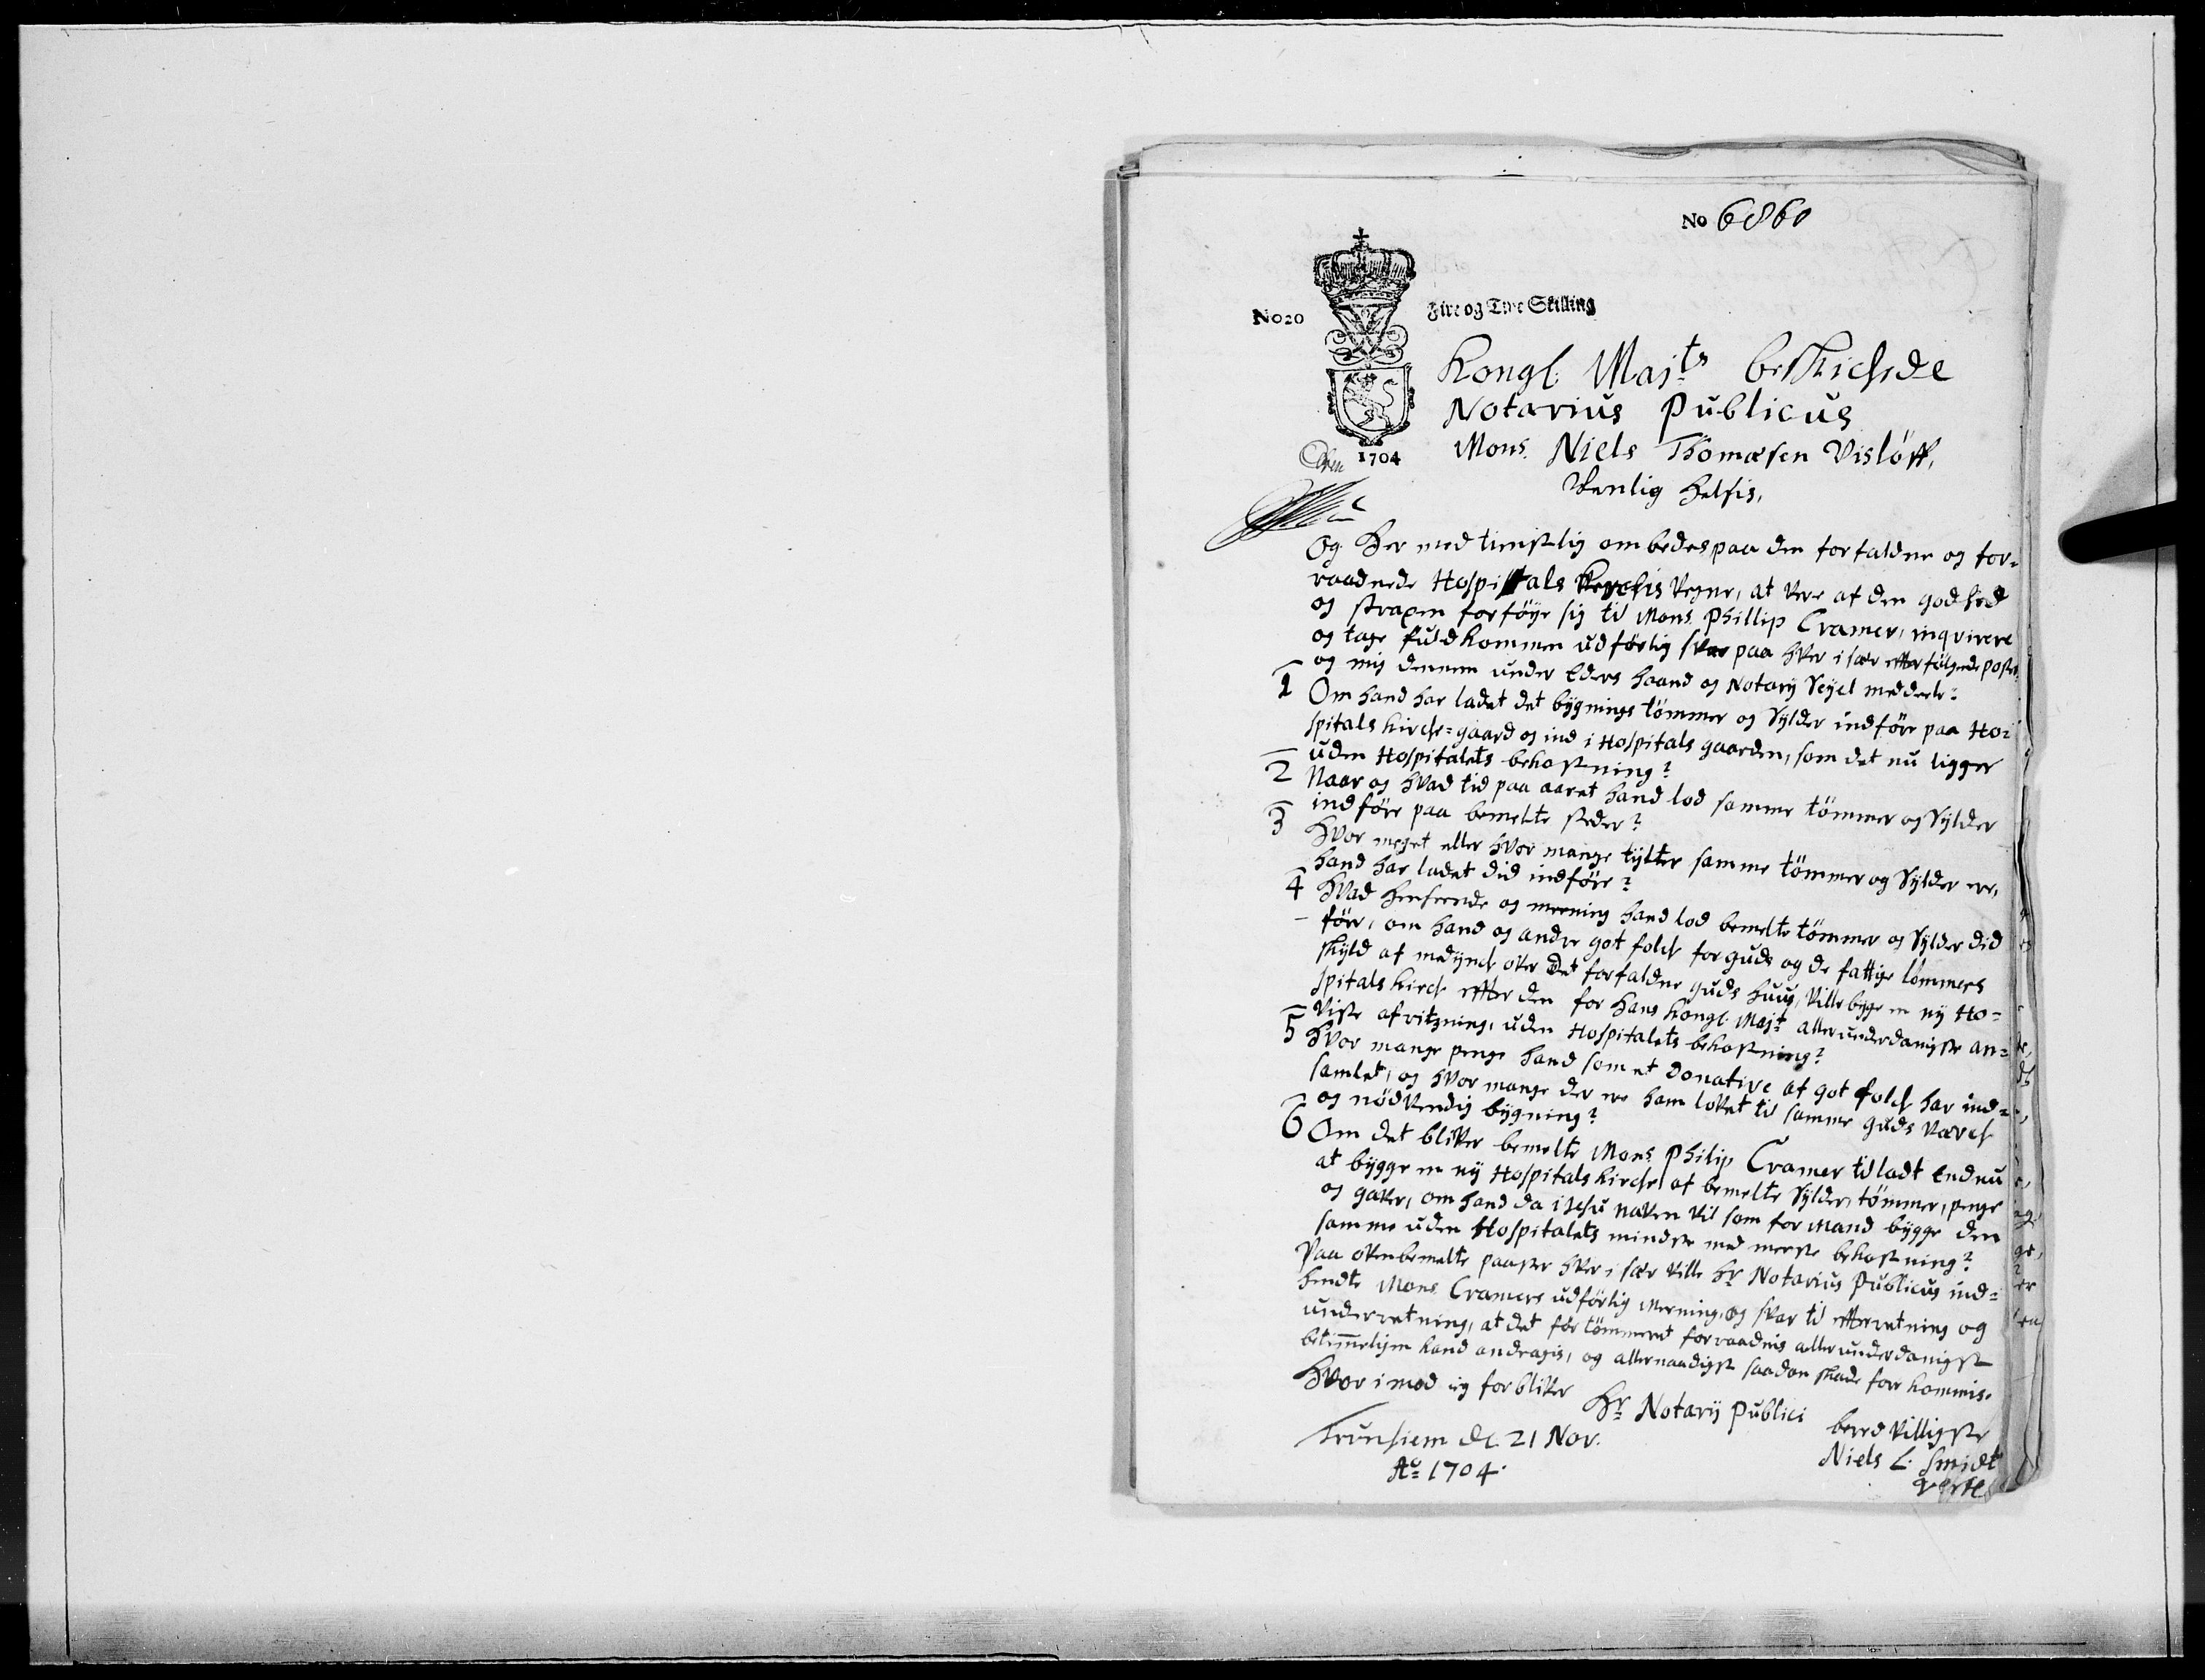 No 6860
No 20
Fire og Tive Skilling
1704
Kongl. Maj:ts beskichede
Notarius Publicus
Mons. Niels Thomæsen Visløff,
Venlig helsis,
Og her med tienstlig ombedes paa den forfaldne og for-
raadnede Hospitals kirchis vegne, at være af den godhed
og straxen forføye sig til Mons. Phillip Cramer, inqvirere
og tage fuldkommen udførlig svar paa hver i sær efterfølgende poster,
og mig dennem under Eders haand og Notarij Seyel meddeele:
1 Om hand har ladet det bygnings tömmer og Sylder indføre paa Ho-
spitals kirche-gaard og ind i Hospitals gaarden, som det nu ligger
uden Hospitalets bekostning?
2 Naar og hvad tid paa aaret hand lod samme tömmer og Sylder
indføre paa bemelte steder?
3 Hvor meget eller hvor mange tylter samme tömmer og Sylder ere,
hand har ladet did indføre?
4 Hvad henseende og meening hand lod bemelte tömmer og Sylder did
føre, om hand og andre got folch for guds og de fattige lemmers
skyld af medynch over det forfaldne guds huus, ville bygge en ny Ho-
spitals kirch efter den for Hans Kongl. Maj:t allerunderdanigste an-
viste afritzning, uden Hospitalets bekostning?
5 Hvor mange penge hand som et Donative af got folch har ind-
samlet, og hvor mange der ere ham lovet til samme guds værch
og nødvendig bygning?
6 Om det bliver bemelte Mons. Philip Cramer tilladt endnu
at bygge en ny Hospitals kirche af bemelte Sylder, tömmer, penge
og gaver, om hand da i Jesu navn vil som formand bygge den
samme uden Hospitalets mindste med meerste bekostning?
Paa ovenbemelte paaster hver i sær ville Hr Notarius Publicus ind-
hendte Mons. Cramers udførlig meening, og svar til efterretning og
underretning, at det før tömmeret forraadnis allerunderdanigst
betimmeligen kand andragis, og allernaadigst saadan skade forekommis.
Hvorimod ieg forbliver
Hr Notarij Publici
beredvilligste
Niels L. Smidt
Trunhiem d. 21 Nov.
Ao 1704.